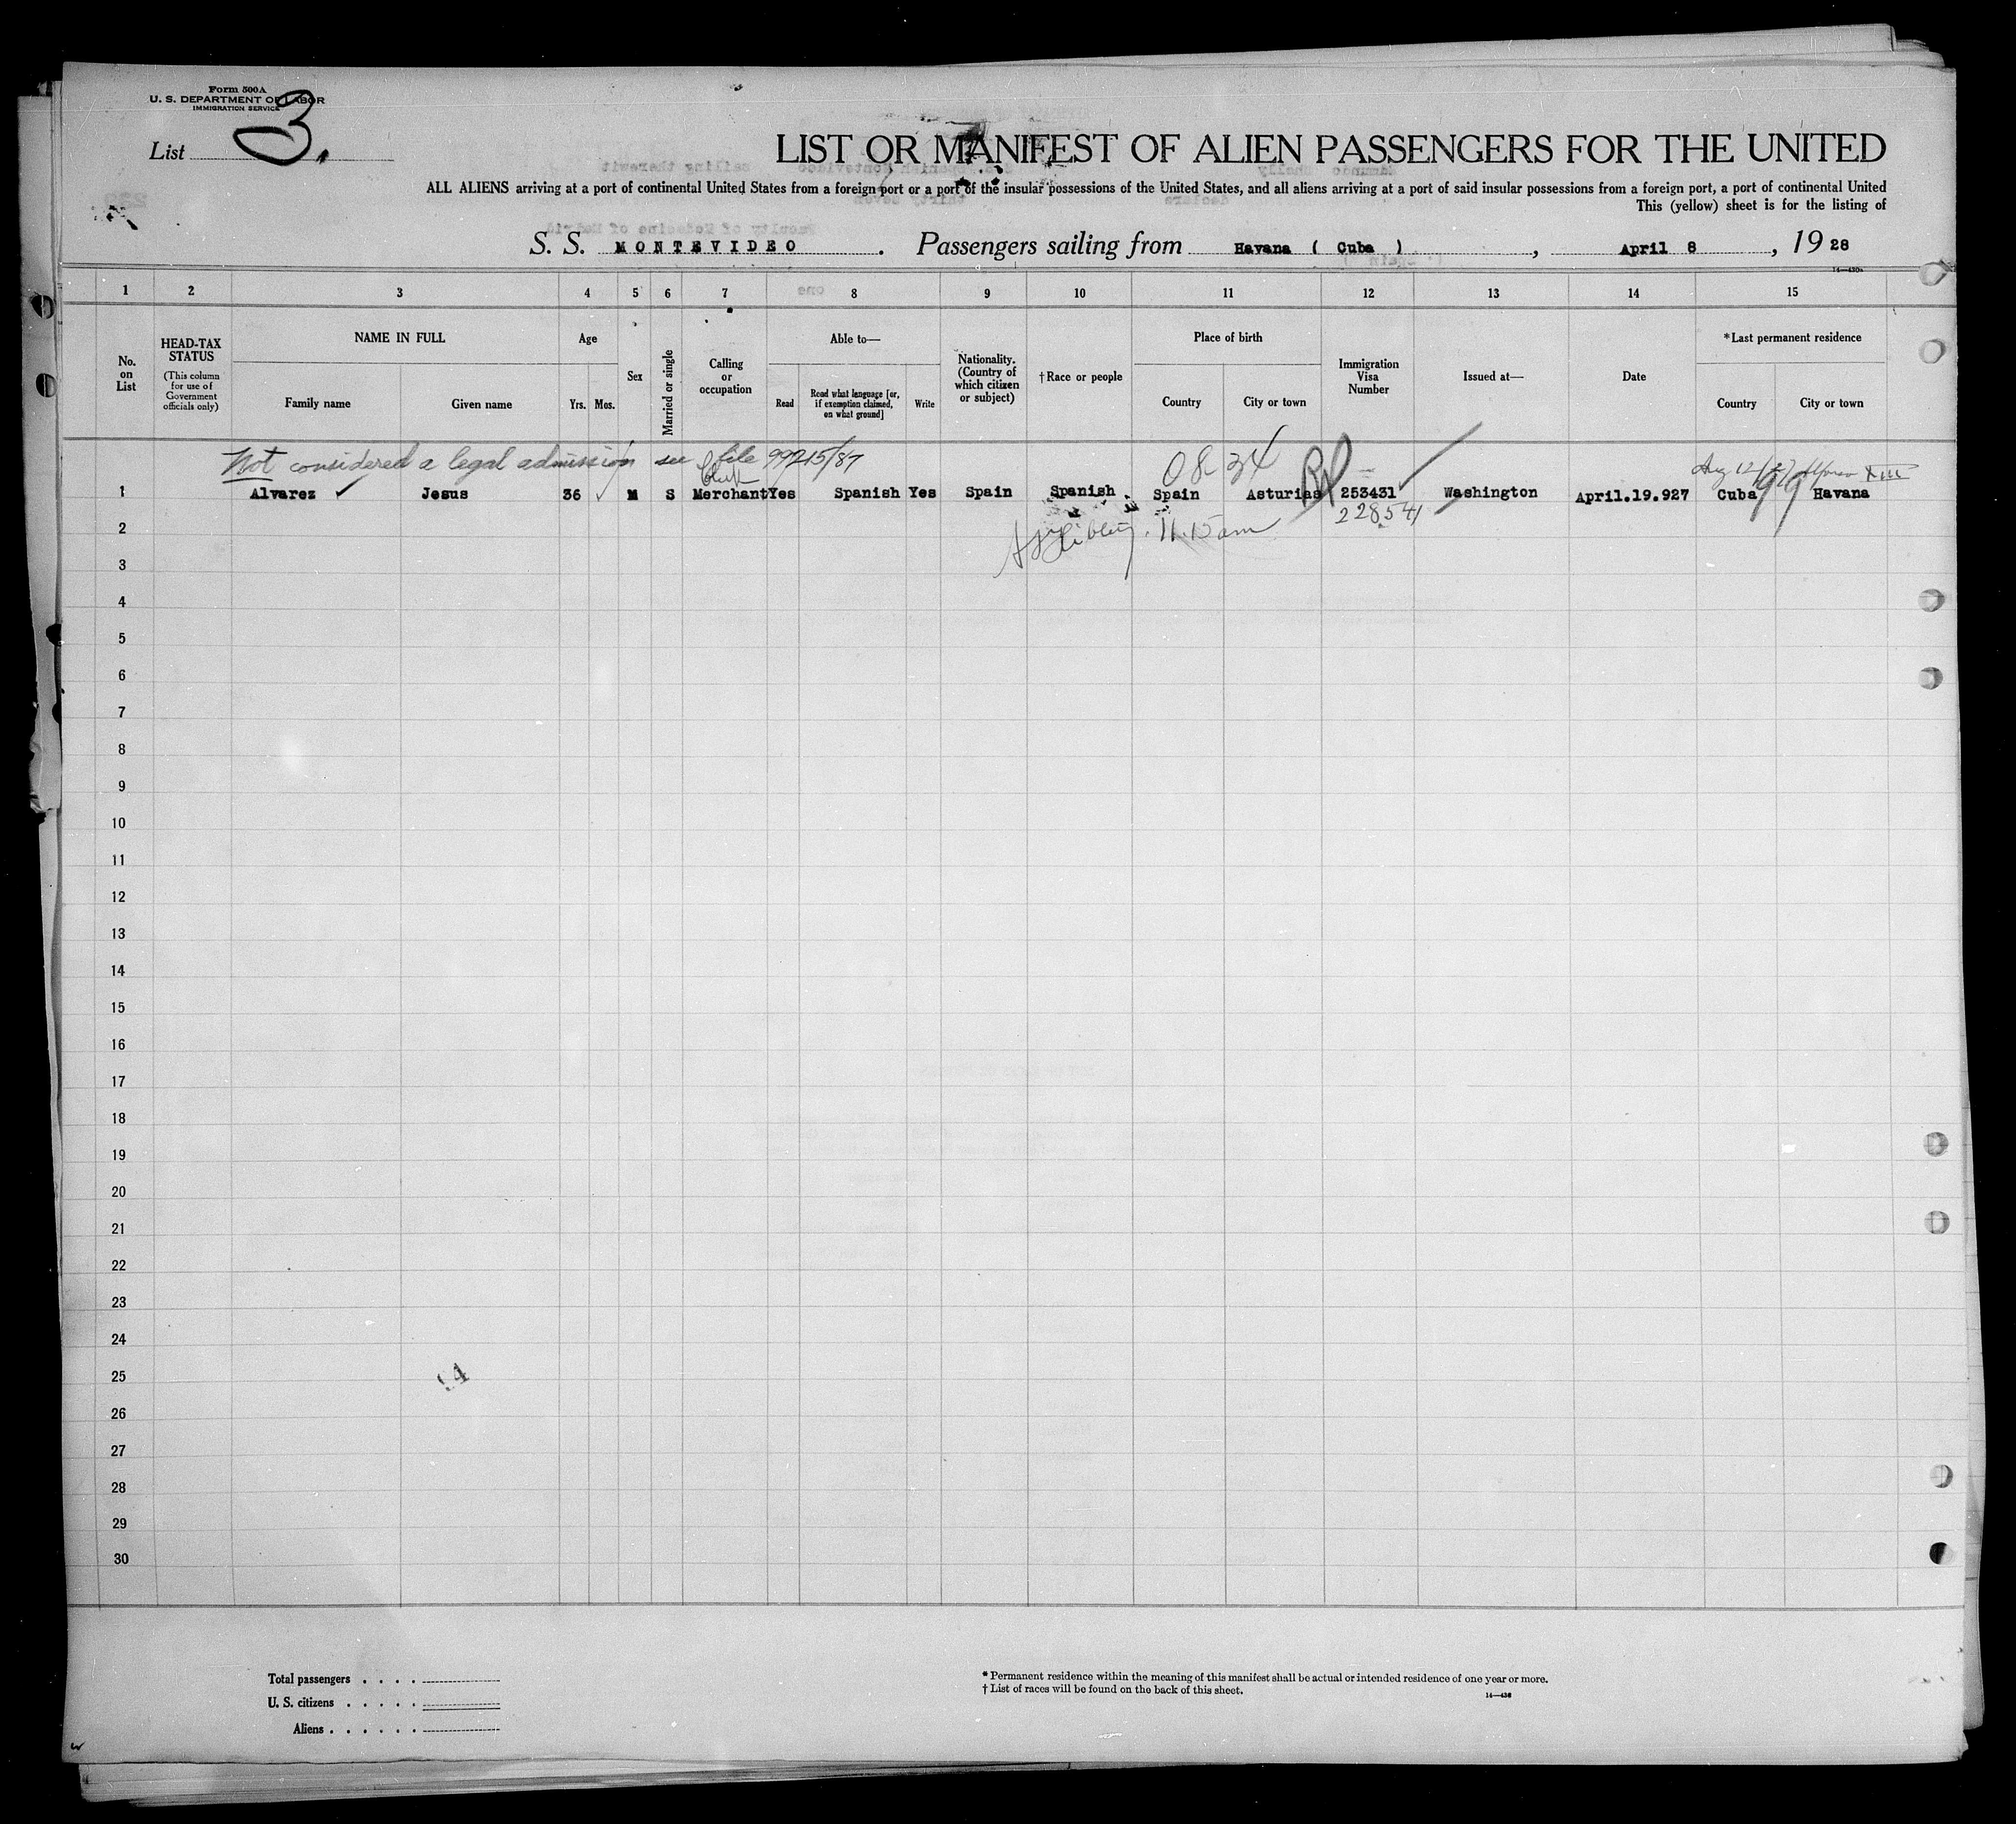 Form 500A
U. S. DEPARTMENT OF LABOR
IMMIGRATION SERVICE
List 3.
LIST OR MANIFEST OF ALIEN PASSENGERS FOR THE UNITED
ALL ALIENS arriving at a port of continental United States from a foreign port or a port of the insular possessions of the United States, and all aliens arriving at a port of said insular possessions from a foreign port, a port of continental United
This (yellow) sheet is for the listing of
S. S. MONTEVIDEO. Passengers sailing from Havana ( Cuba ), April 8, 1928
14—430a
1 2 3 4 5 6 7 8 9 10 11 12 13 14 15
No. on List
HEAD-TAX STATUS
(This column for use of Government officials only)
NAME IN FULL
Family name Given name
Age
Yrs. Mos.
Sex
Married or single
Calling or occupation
Able to—
Read
Read what language [or, if exemption claimed, on what ground]
Write
Nationality. (Country of which citizen or subject)
†Race or people
Place of birth
Country City or town
Immigration Visa Number
Issued at—
Date
*Last permanent residence
Country City or town
Not considered a legal admission see file 99215/87
08 34
Clerk
1 Alvarez Jesus 36 M S Merchant Yes Spanish Yes Spain Spanish Spain Asturias 253431 Washington April.19.927 Cuba Havana
228541
11.15 am
2
3
4
5
6
7
8
9
10
11
12
13
14
15
16
17
18
19
20
21
22
23
24
25
26
27
28
29
30
Total passengers . . . .
U. S. citizens . . . . .
Aliens . . . . . .
* Permanent residence within the meaning of this manifest shall be actual or intended residence of one year or more.
† List of races will be found on the back of this sheet.